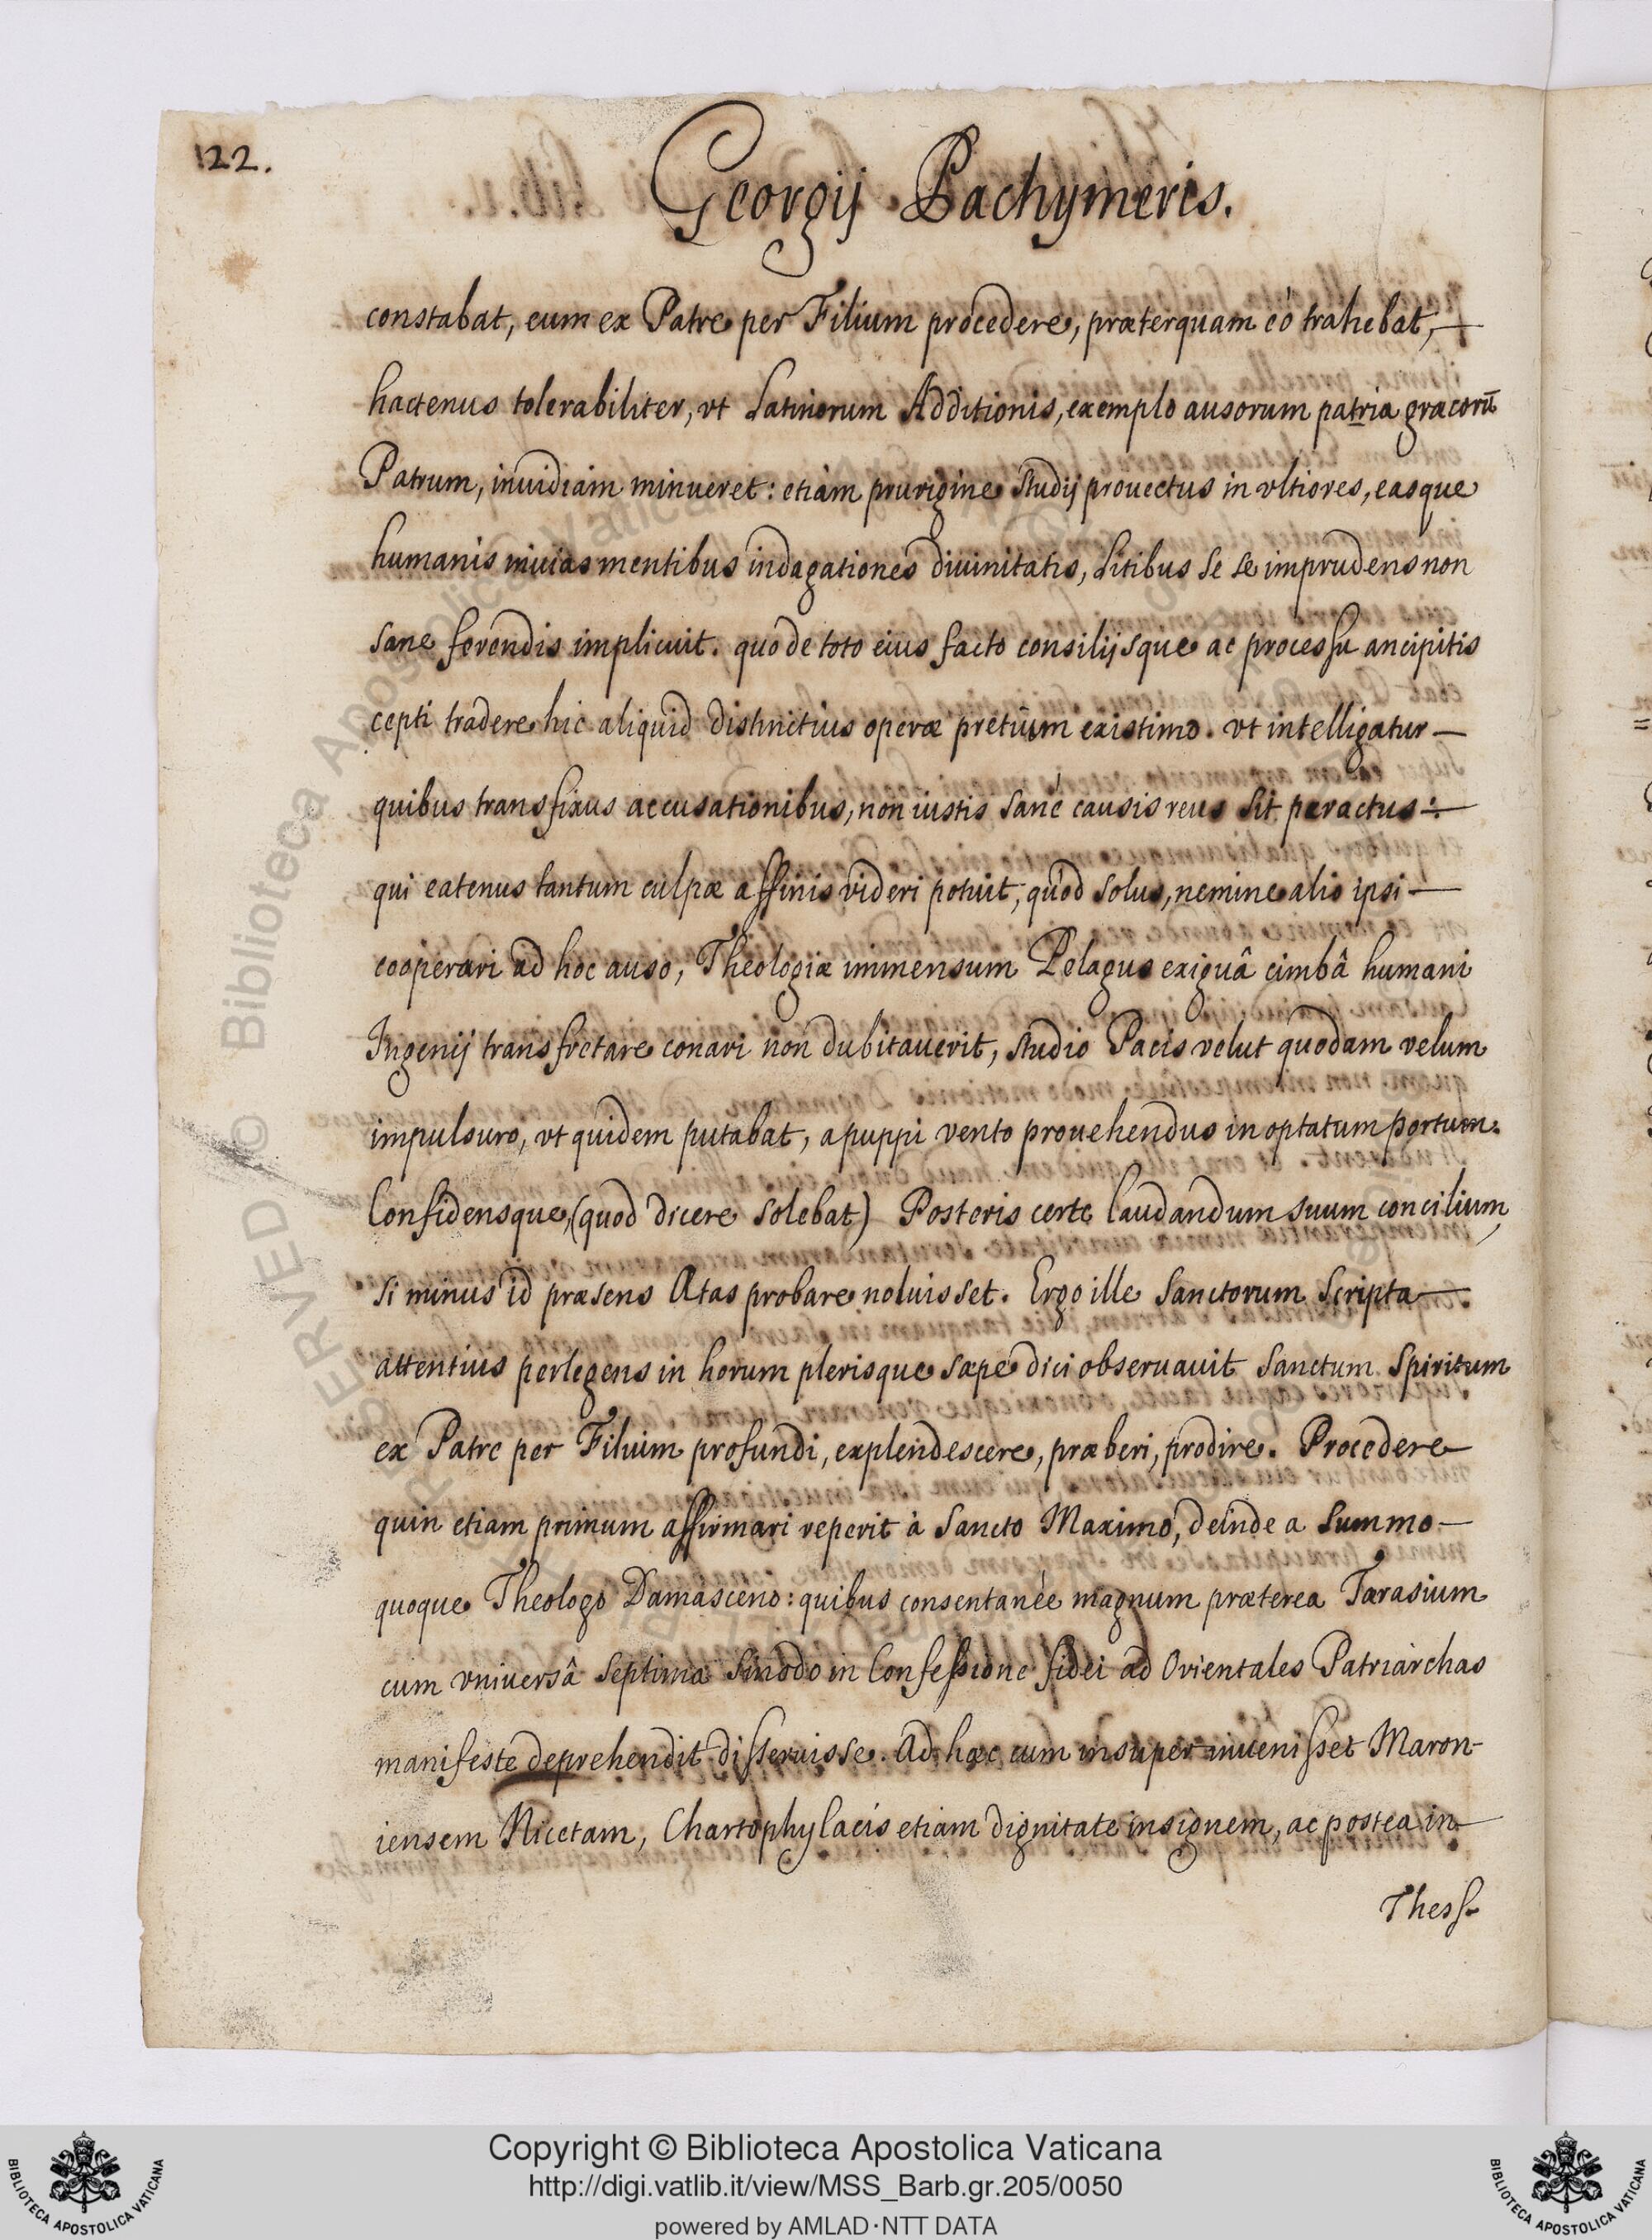 122.
Georgij Pachymeris.
constabat, eum ex Patre per Filium procedere, præterquam eó trahebat,
hactenus tolerabiliter, vt Latinorum Additionis, exemplo ausorum patria græcorū
Patrum, inuidiam minueret: etiam prurigine studij prouectus in vltiores, easque
humanis inuias mentibus indagationes diuinitatis, litibus se se imprudens non
sane ferendis implicuit. quo de toto eius facto consilijsque ac processu ancipitis
cepti tradere hic aliquid distinctius operæ pretium existimo. vt intelligatur
quibus transfixus accusationibus, non iustis sané causis reus sit peractus:
qui eatenus tantum culpæ affinis videri potuit, quód solus, nemine alio ipsi
cooperari ad hoc auso, Theologiæ immensum Pelagus exiguâ cimbâ humani
Ingenij transfretare conari non dubitauerit, studio Pacis velut quodam velum
impulsuro, vt quidem putabat, a puppi vento prouehendus in optatum portum.
Confidensque, (quod dicere solebat) Posteris certe laudandum suum concilium,
si minus id præsens Ætas probare noluisset. Ergo ille Sanctorum Scripta
attentius perlegens in horum plerisque sæpe dici obseruauit Sanctum Spiritum
ex Patre per Filium profundi, explendescere, præberi, prodire. Procedere
quin etiam primum affirmari reperit à Sancto Maximo, deinde a Summo
quoque Theologo Damasceno: quibus consentanée magnum præterea Tarasium
cum vniuersâ septima Sinodo in Confessione fidei ad Orientales Patriarchas
manifeste deprehendit disseruisse. Ad hæc cum insuper inuenisset Maron-
iensem Nicetam, Chartophylacis etiam dignitate insignem, ac postea in
Thess.
© Biblioteca Apostolica Vaticana
Copyright © Biblioteca Apostolica Vaticana
http://digi.vatlib.it/view/MSS_Barb.gr.205/0050
powered by AMLAD·NTT DATA
BIBLIOTECA APOSTOLICA VATICANA
BIBLIOTECA APOSTOLICA VATICANA